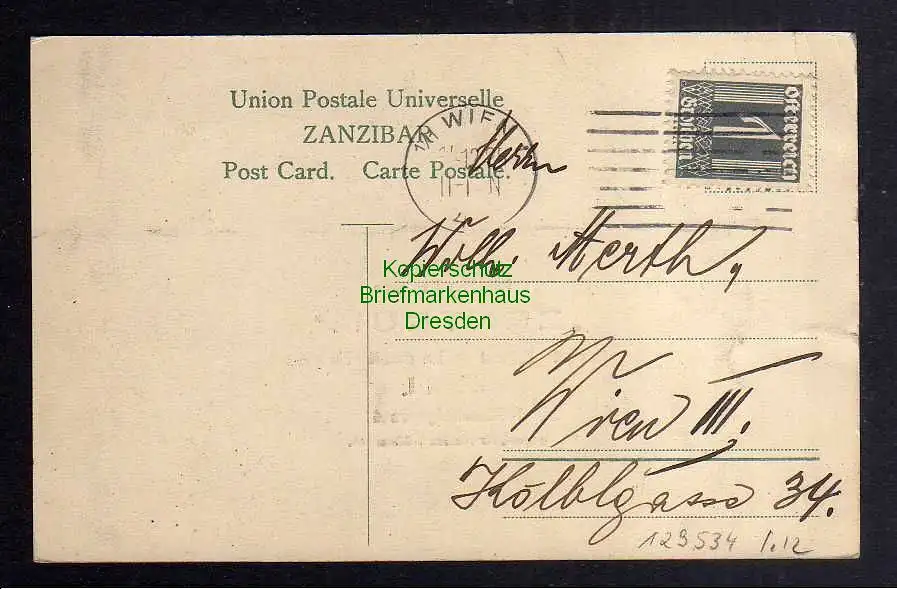 Union Postale Universelle
ZANZIBAR
Post Card. Carte Postale.
WIEN
Österreich
1
Groschen
Herrn
Merth,
Kopierschutz
Briefmarkenhaus
Dresden
Wien III.
Kölblgasse 34.
129534 1.12